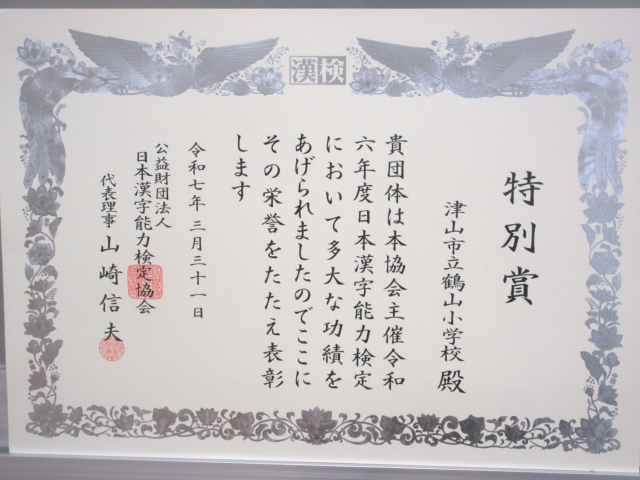 漢検
特別賞
津山市立鶴山小学校 殿
貴団体は本協会主催令和
六年度日本漢字能力検定
において多大な功績を
あげられましたのでここに
その栄誉をたたえ表彰
します
令和七年 三月三十一日
公益財団法人
日本漢字能力検定協会
代表理事 山崎信夫